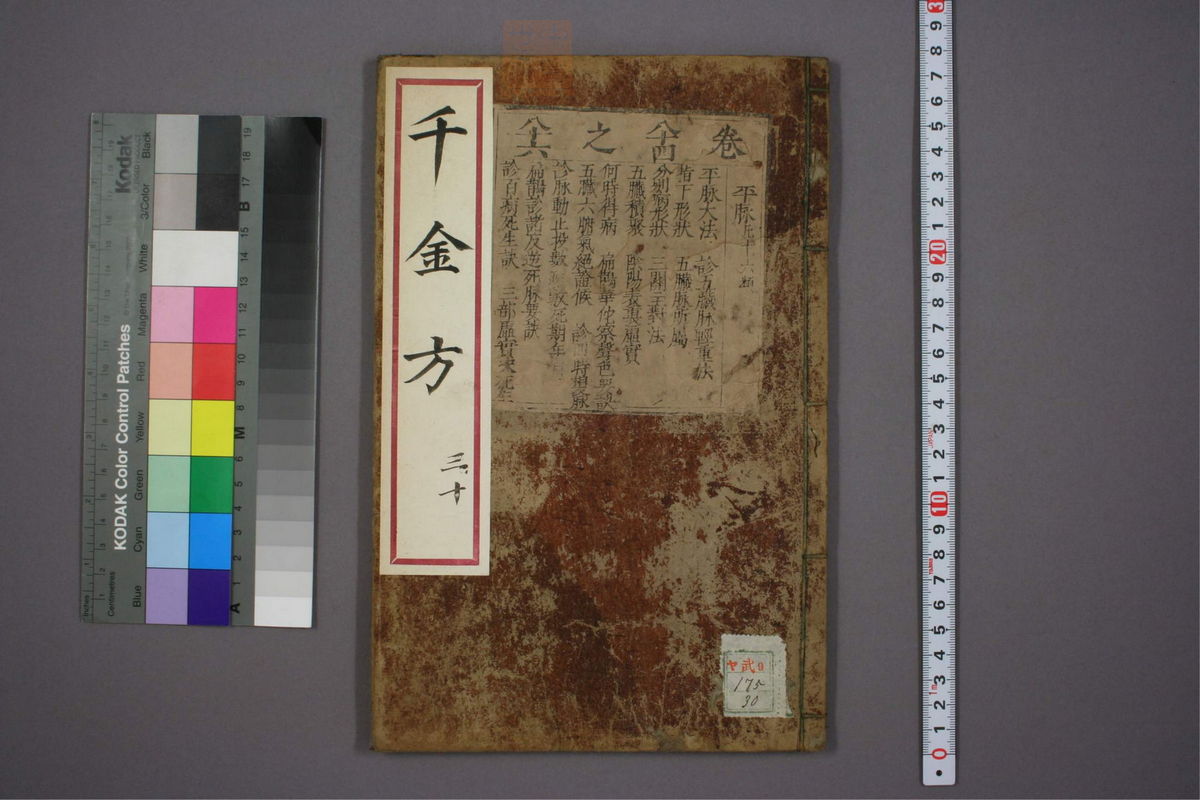 千金方
三十
卷 八十四 之 八十六
平脉 凡十六類
平脉大法 診五臟脉輕重法
指下形狀 五臟脉所屬
分別病形狀 三關主對法
五臟積聚 陰陽表裏虛實
何時得病 扁鵲華佗察聲色要訣
五臟六腑氣絕證候 診四時相反脉
診脉動止投數
扁鵲診諸反逆死脉要訣
診百病死生訣 三部虛實決死生
ヤ武9
175
30
Kodak
KODAK Color Control Patches
Black
3/Color
White
Magenta
Red
Yellow
Green
Cyan
Blue
Inches
Centimetres
19
18
17
B
15
14
13
12
11
10
9
8
M
6
5
4
3
2
1
A
3
9
8
7
6
5
4
3
2
1
20
9
8
7
6
5
4
3
2
1
10
9
8
7
6
5
4
3
2
1
0
JAPAN
1m